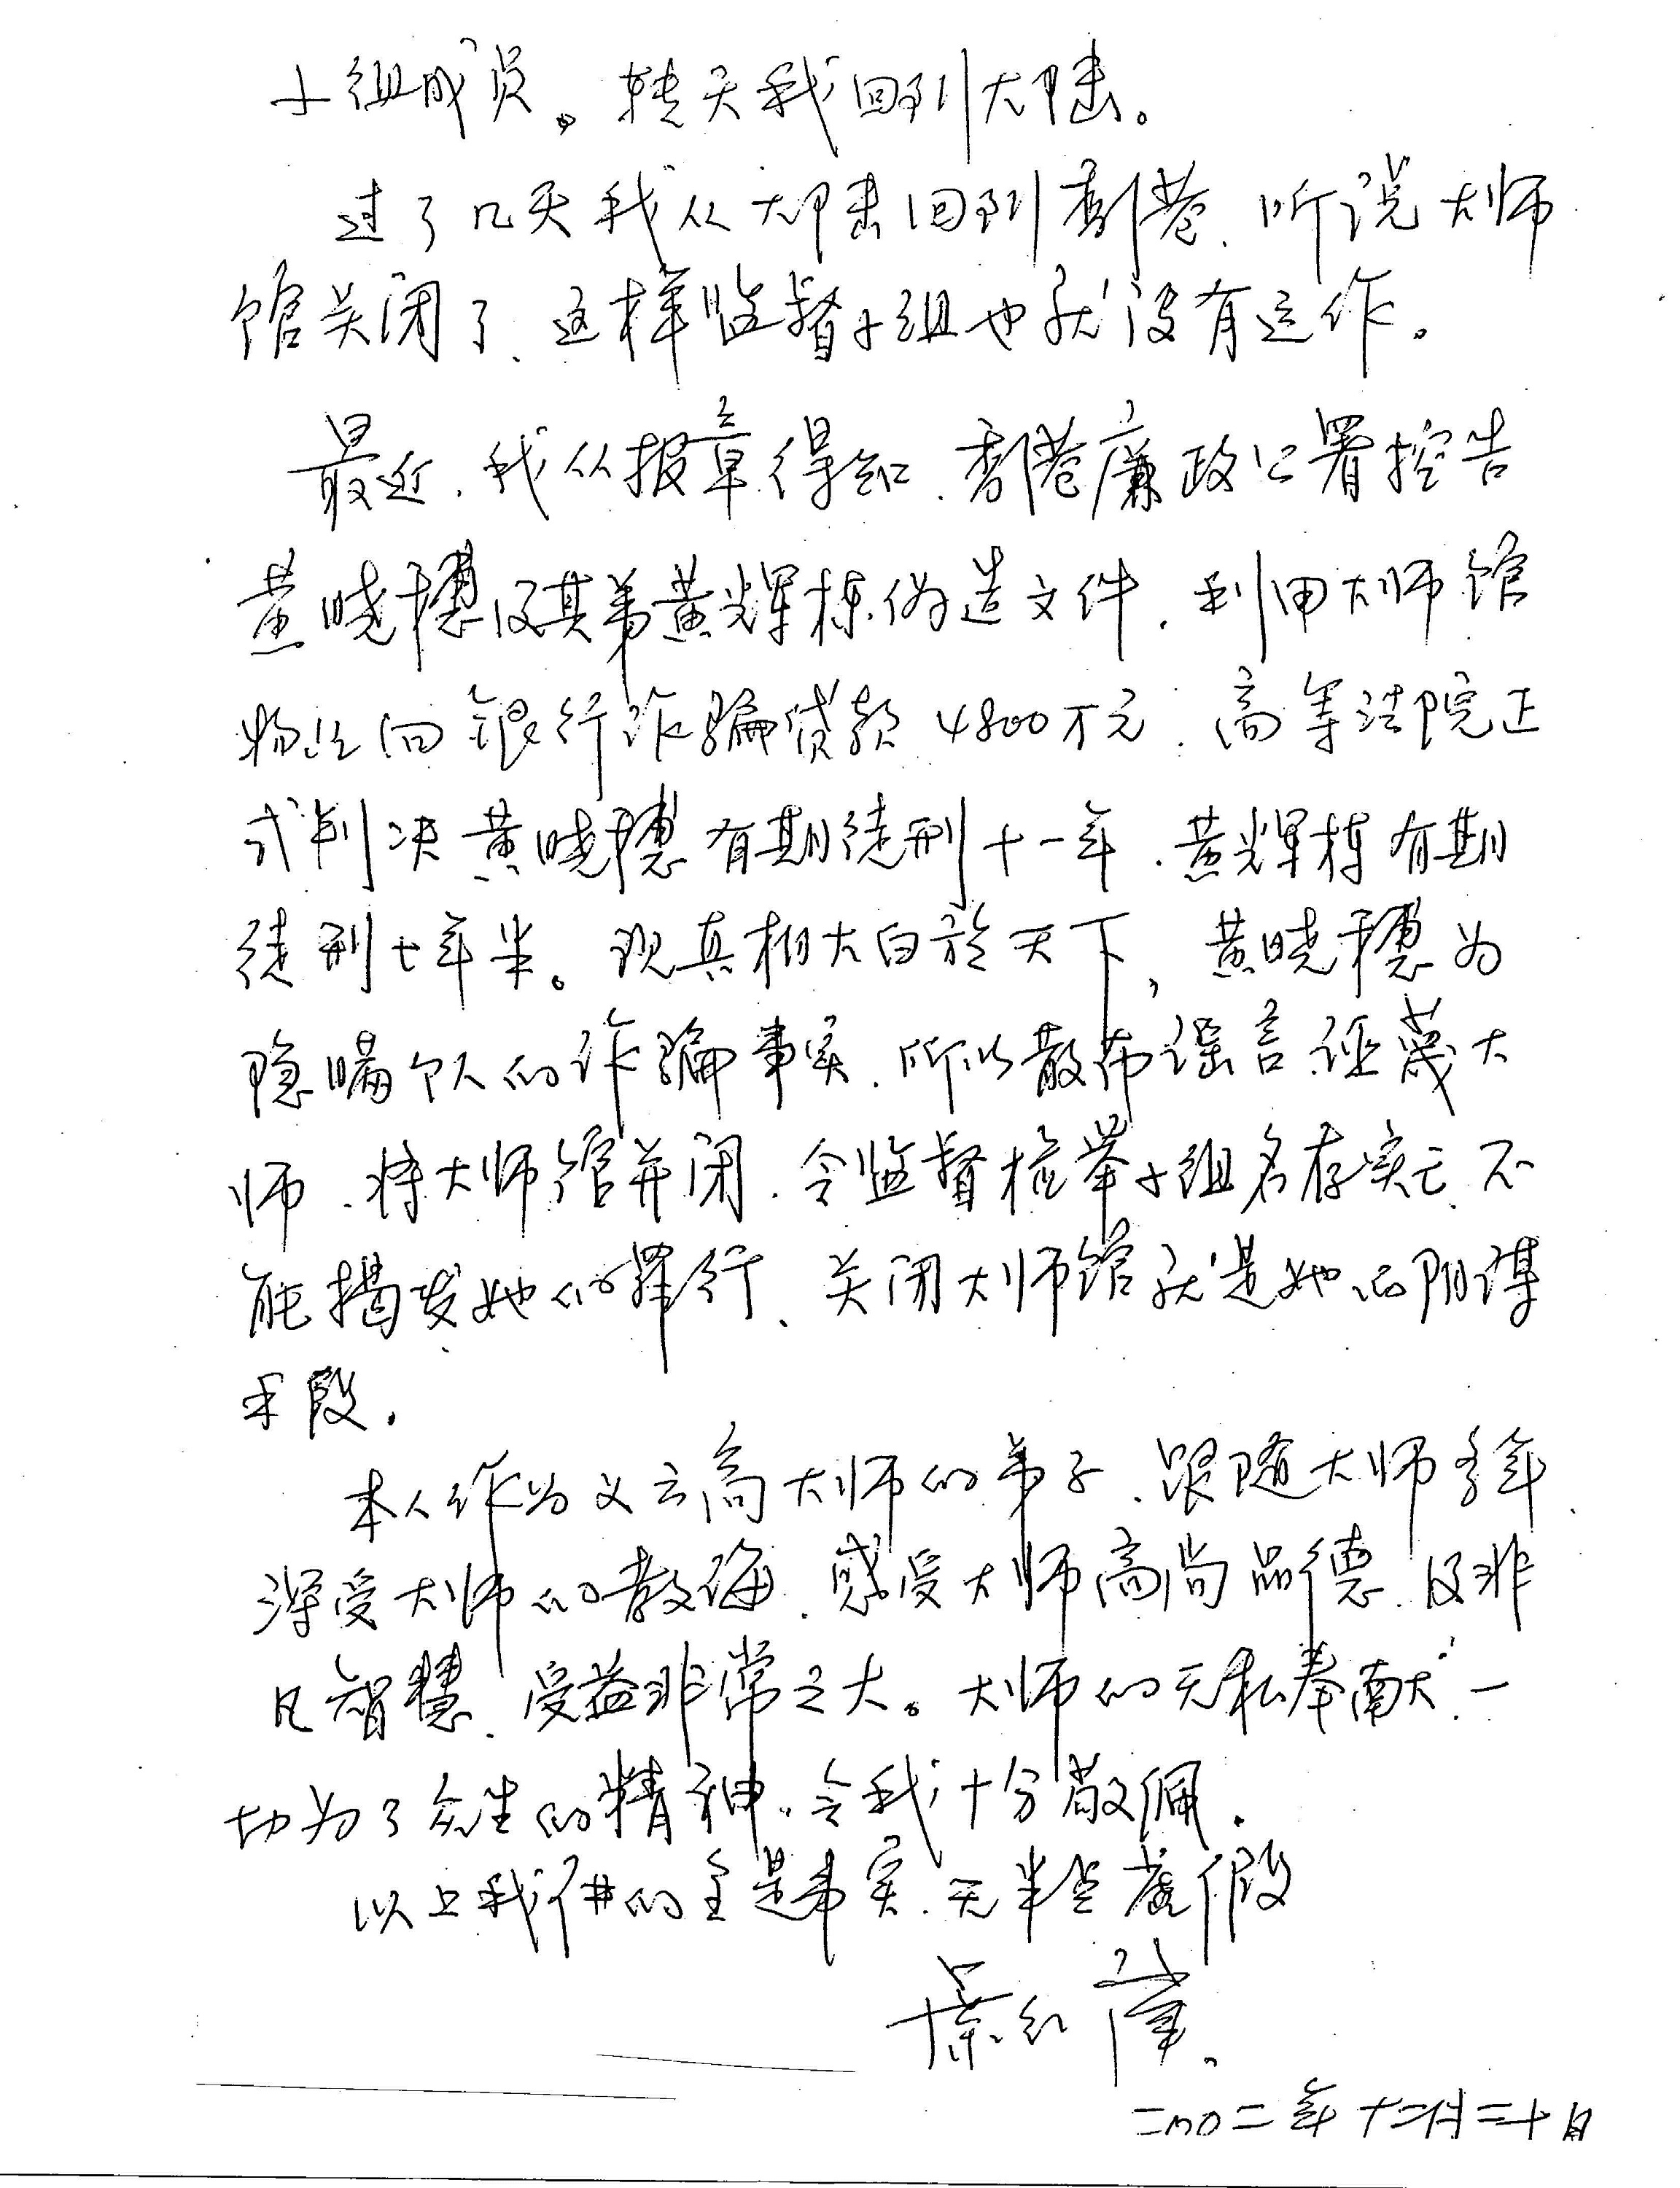 小组成员。转天我回到大陆。
过了几天我从大陆回到香港、听说大师
馆关闭了、这样监督小组也就没有运作。
最近、我从报章得知、香港廉政公署控告
黄晓穗及其弟黄辉栋伪造文件、利用大师馆
物业向银行诈骗贷款4800万元、高等法院正
式判决黄晓穗有期徒刑十一年、黄辉栋有期
徒刑七年半。现真相大白於天下，黄晓穗为
隐瞒个人的诈骗事实、所以散布谣言诬蔑大
师、将大师馆关闭、令监督检举小组名存实亡、不
能揭发她的罪行、关闭大师馆就是她的阴谋
手段.
本人作为义云高大师的弟子、跟随大师多年、
深受大师的教诲、感受大师高尚品德、及非
凡智慧、受益非常之大。大师的无私奉献、一
切为了众生的精神、令我十分敬佩.
以上我讲的全是事实、无半点虚假
二〇〇二年十二月二十日